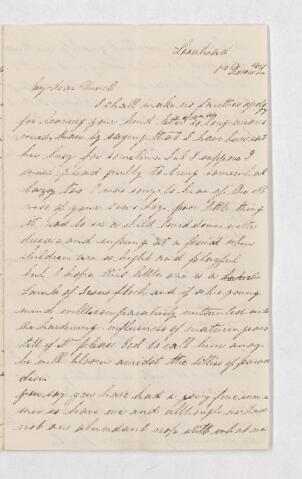 1st December
My dear Annie
I shall make no further apology
for leaving your kind letter so long unans
wered than by saying that I have been rat
her busy for sometime but I suppose I
must plead guilty to being somewhat
lazy too I was sorry to hear of the ill
ness of your own boy poor little thing
it is sad to see a child loaded down with
disease and suffering at a period when
children are so light and playful
but I hope this little one is a
Lamb of Jesus flock and if so his young
mind will comparatively untainted
the hardening influences of maturer years
still if it please God to call him away
he will bloom amidst the lillies of para
dise
you say you have had a very fine sum
mer so have we and although we had
not an abundant crop still what we